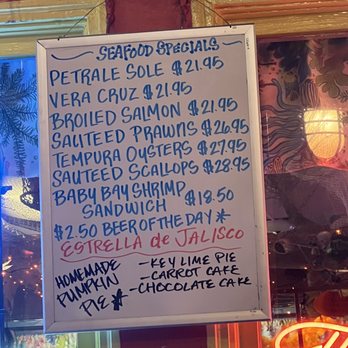 SEAFOOD SPECIALS
PETRALE SOLE $21.95
VERA CRUZ $21.95
BROILED SALMON $21.95
SAUTEED PRAWNS $26.95
TEMPURA OYSTERS $27.95
SAUTEED SCALLOPS $28.95
BABY BAY SHRIMP
SANDWICH $18.50
$2.50 BEER OF THE DAY *
ESTRELLA de JALISCO
HOMEMADE
PUMPKIN
PIE *
- KEY LIME PIE
- CARROT CAKE
- CHOCOLATE CAKE